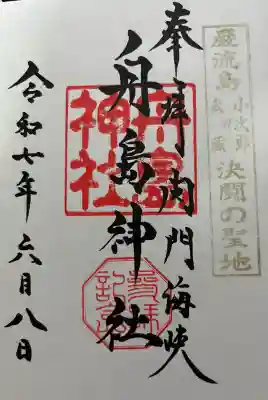 巌流島
小次郎
武蔵
決闘の聖地
奉拝 関門海峡
舟島神社
舟島
神社
参拝
記念
令和七年六月八日